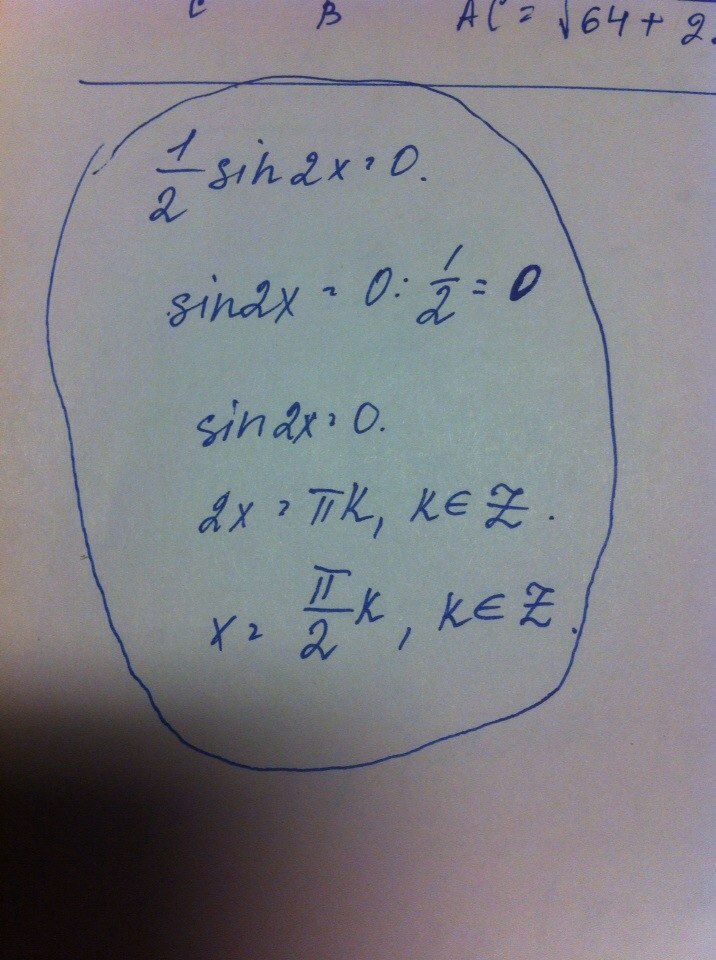 C B AC = √64 + 2.
1/2 sin 2x = 0.
sin2x = 0 : 1/2 = 0
sin 2x = 0.
2x = πk, k ∈ Z.
x = π/2 k, k ∈ Z.